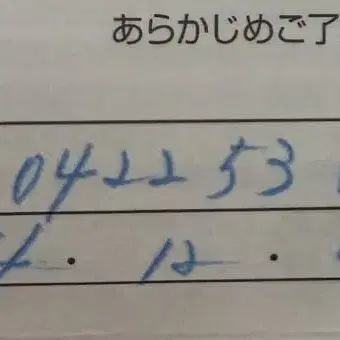 あらかじめご了
0422 53
・ 12 ・